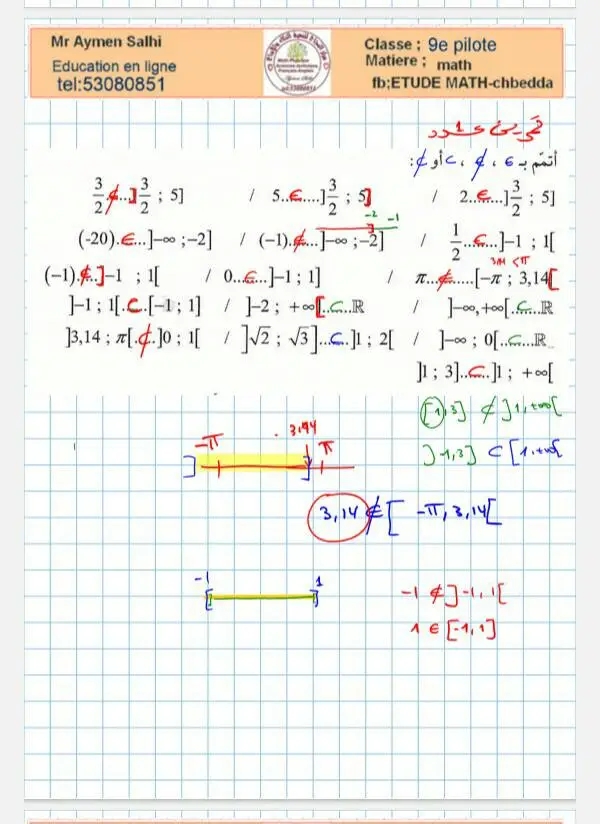 Mr Aymen Salhi
Education en ligne
tel:53080851
Classe ; 9e pilote
Matiere ; math
fb;ETUDE MATH-chbedda
تمرين عدد 1
أتمّم بـ ∈ ، ∉ ، ⊂ أو ⊄ :
3/2.∉..]3/2 ; 5] / 5..∈....]3/2 ; 5] / 2..∈...]3/2 ; 5]
-2 -1
(-20).∈...]-∞ ;-2] / (-1).∉...]-∞ ;-2] / 1/2..∈...]-1 ; 1[
3,14 < π
(-1).∉..]-1 ; 1[ / 0...∈...]-1 ; 1] / π...∉.....[-π ; 3,14[
]-1 ; 1[.⊂.[-1 ; 1] / ]-2 ; +∞[..⊂..ℝ / ]-∞,+∞[..⊂...ℝ
]3,14 ; π[.⊄.]0 ; 1[ / ]√2 ; √3]...⊂..]1 ; 2[ / ]-∞ ; 0[..⊂...ℝ
]1 ; 3]..⊂..]1 ; +∞[
[1,3] ⊄ ]1,+∞[
3,14
-π π
]-1,3] ⊂ [1,+∞[
3,14 ∉ [ -π, 3,14[
-1 1
-1 ∉ ]-1, 1[
1 ∈ [-1, 1]